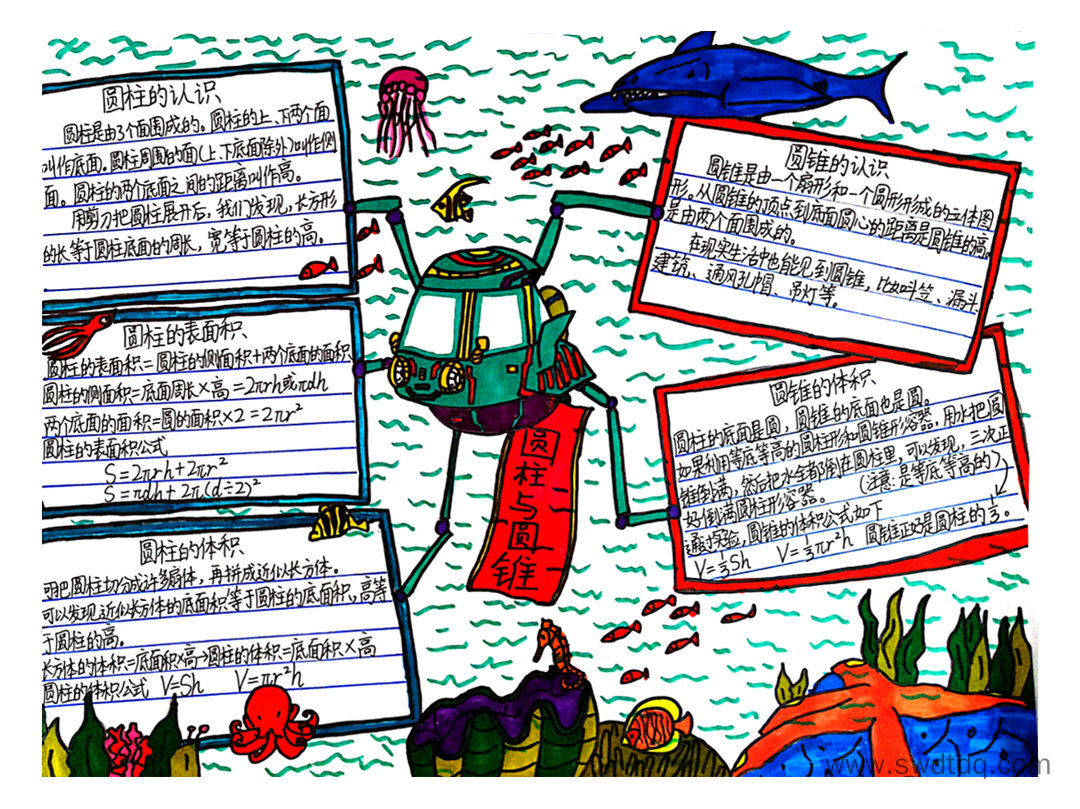 圆柱的认识
圆柱是由3个面围成的。圆柱的上、下两个面
叫作底面。圆柱周围的面(上、下底面除外)叫作侧
面。圆柱的两个底面之间的距离叫作高。
用剪刀把圆柱展开后，我们发现，长方形
的长等于圆柱底面的周长，宽等于圆柱的高。
圆柱的表面积
圆柱的表面积=圆柱的侧面积+两个底面的面积
圆柱的侧面积=底面周长×高=2πrh或πdh
两个底面的面积=圆的面积×2=2πr²
圆柱的表面积公式
S=2πrh+2πr²
S=πdh+2π(d÷2)²
圆柱的体积
可把圆柱切分成许多扇体，再拼成近似长方体。
可以发现近似长方体的底面积等于圆柱的底面积，高等
于圆柱的高。
长方体的体积=底面积×高→圆柱的体积=底面积×高
圆柱的体积公式 V=Sh V=πr²h
圆柱与圆锥
圆锥的认识
圆锥是由一个扇形和一个圆形形成的立体图
形，从圆锥的顶点到底面圆心的距离是圆锥的高。
是由两个面围成的。
在现实生活中也能见到圆锥，比如斗笠、漏斗、
建筑、通风孔帽、吊灯等。
圆锥的体积
圆柱的底面是圆，圆锥的底面也是圆。
如果利用等底等高的圆柱形和圆锥形容器，用水把圆
锥倒满，然后把水全部倒在圆柱里，可以发现，三次正
好倒满圆柱形容器。 (注意：是等底等高的)
通过实验，圆锥的体积公式如下 圆锥正好是圆柱的⅓。
V=⅓Sh V=⅓πr²h
www.swdtdq.com